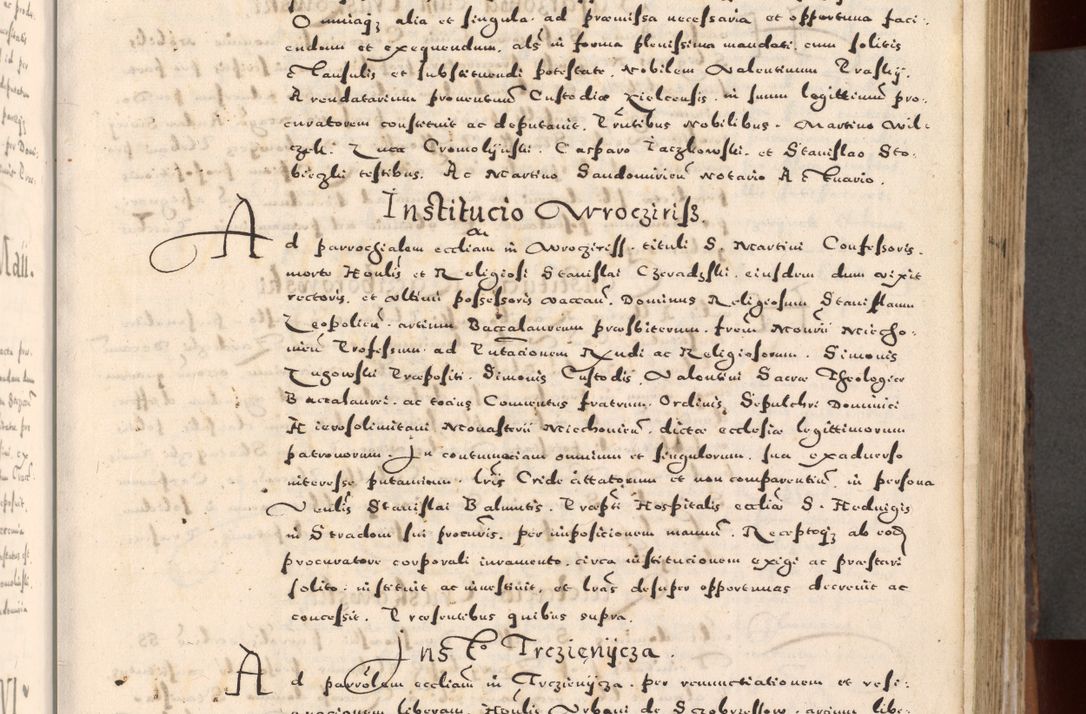 Omniaqz alia et singula ad præmissa necessaria et opportuna faci-
endum et exequendum, als in forma plenissima mandati cum solitis
Clausulis et substituendi potestate, Nobilem Valentinum Praskÿ.
Arendatarium proventuum Custodiæ Kielcensis in suum legittimum pro-
curatorem constituit ac deputavit. Pntibus Nobilibus. Martino Wil-
czek. Luca Cromolÿnski. Casparo Jaczkowski. et Stanislao Sto-
bieczki testibus. Ac Martino Sandomirien Notario Actuario.
Institucio Wrocziriss.
Ad parrochialem eccliam in Wrocziriss. tituli S. Martini Confessoris.
morte Honlis et Religiosi Stanislai Czeradzski. eiusdem dum vixit
rectoris. et ultimi possessoris vaccan. Dominus Religiosum Stanislaum
Leopolien. artium Baccalaureum præsbiterum. frem Monrii Miecho-
vien Professum. ad Pntacionem Rndi ac Religiosorum. Simonis
Lugowski Præpositi. Simonis Custodis, Valentini Sacræ Theologiæ
Baccalaurei. ac tocius Conventus fratrum Ordinis Sepulchri Dominici
Hierosolimitani Monasterii Miechovien. dictæ ecclesiæ legittimorum
patronorum. In contumaciam omnium et singulorum. sua ex adverso
interesse putantium. lris Cride cittatorum et non comparentium. in persona
Venlis Stanislai Balnutis. Præpti Hospitalis ecclia S. Hedvigis
in Stradom sui procuris. per impositionem manuum. Receptoqz ab eod
procuratore corporali iuramento. circa institucionem exigi ac præstari
solito. instituit ac investivit. et lras desuper opportunas decrevit ac
concessit. Præsentibus quibus supra.
Inst° Trczienÿcza.
Ad parrolem eccliam in Trczienÿcza. per renunctiationem et resi-